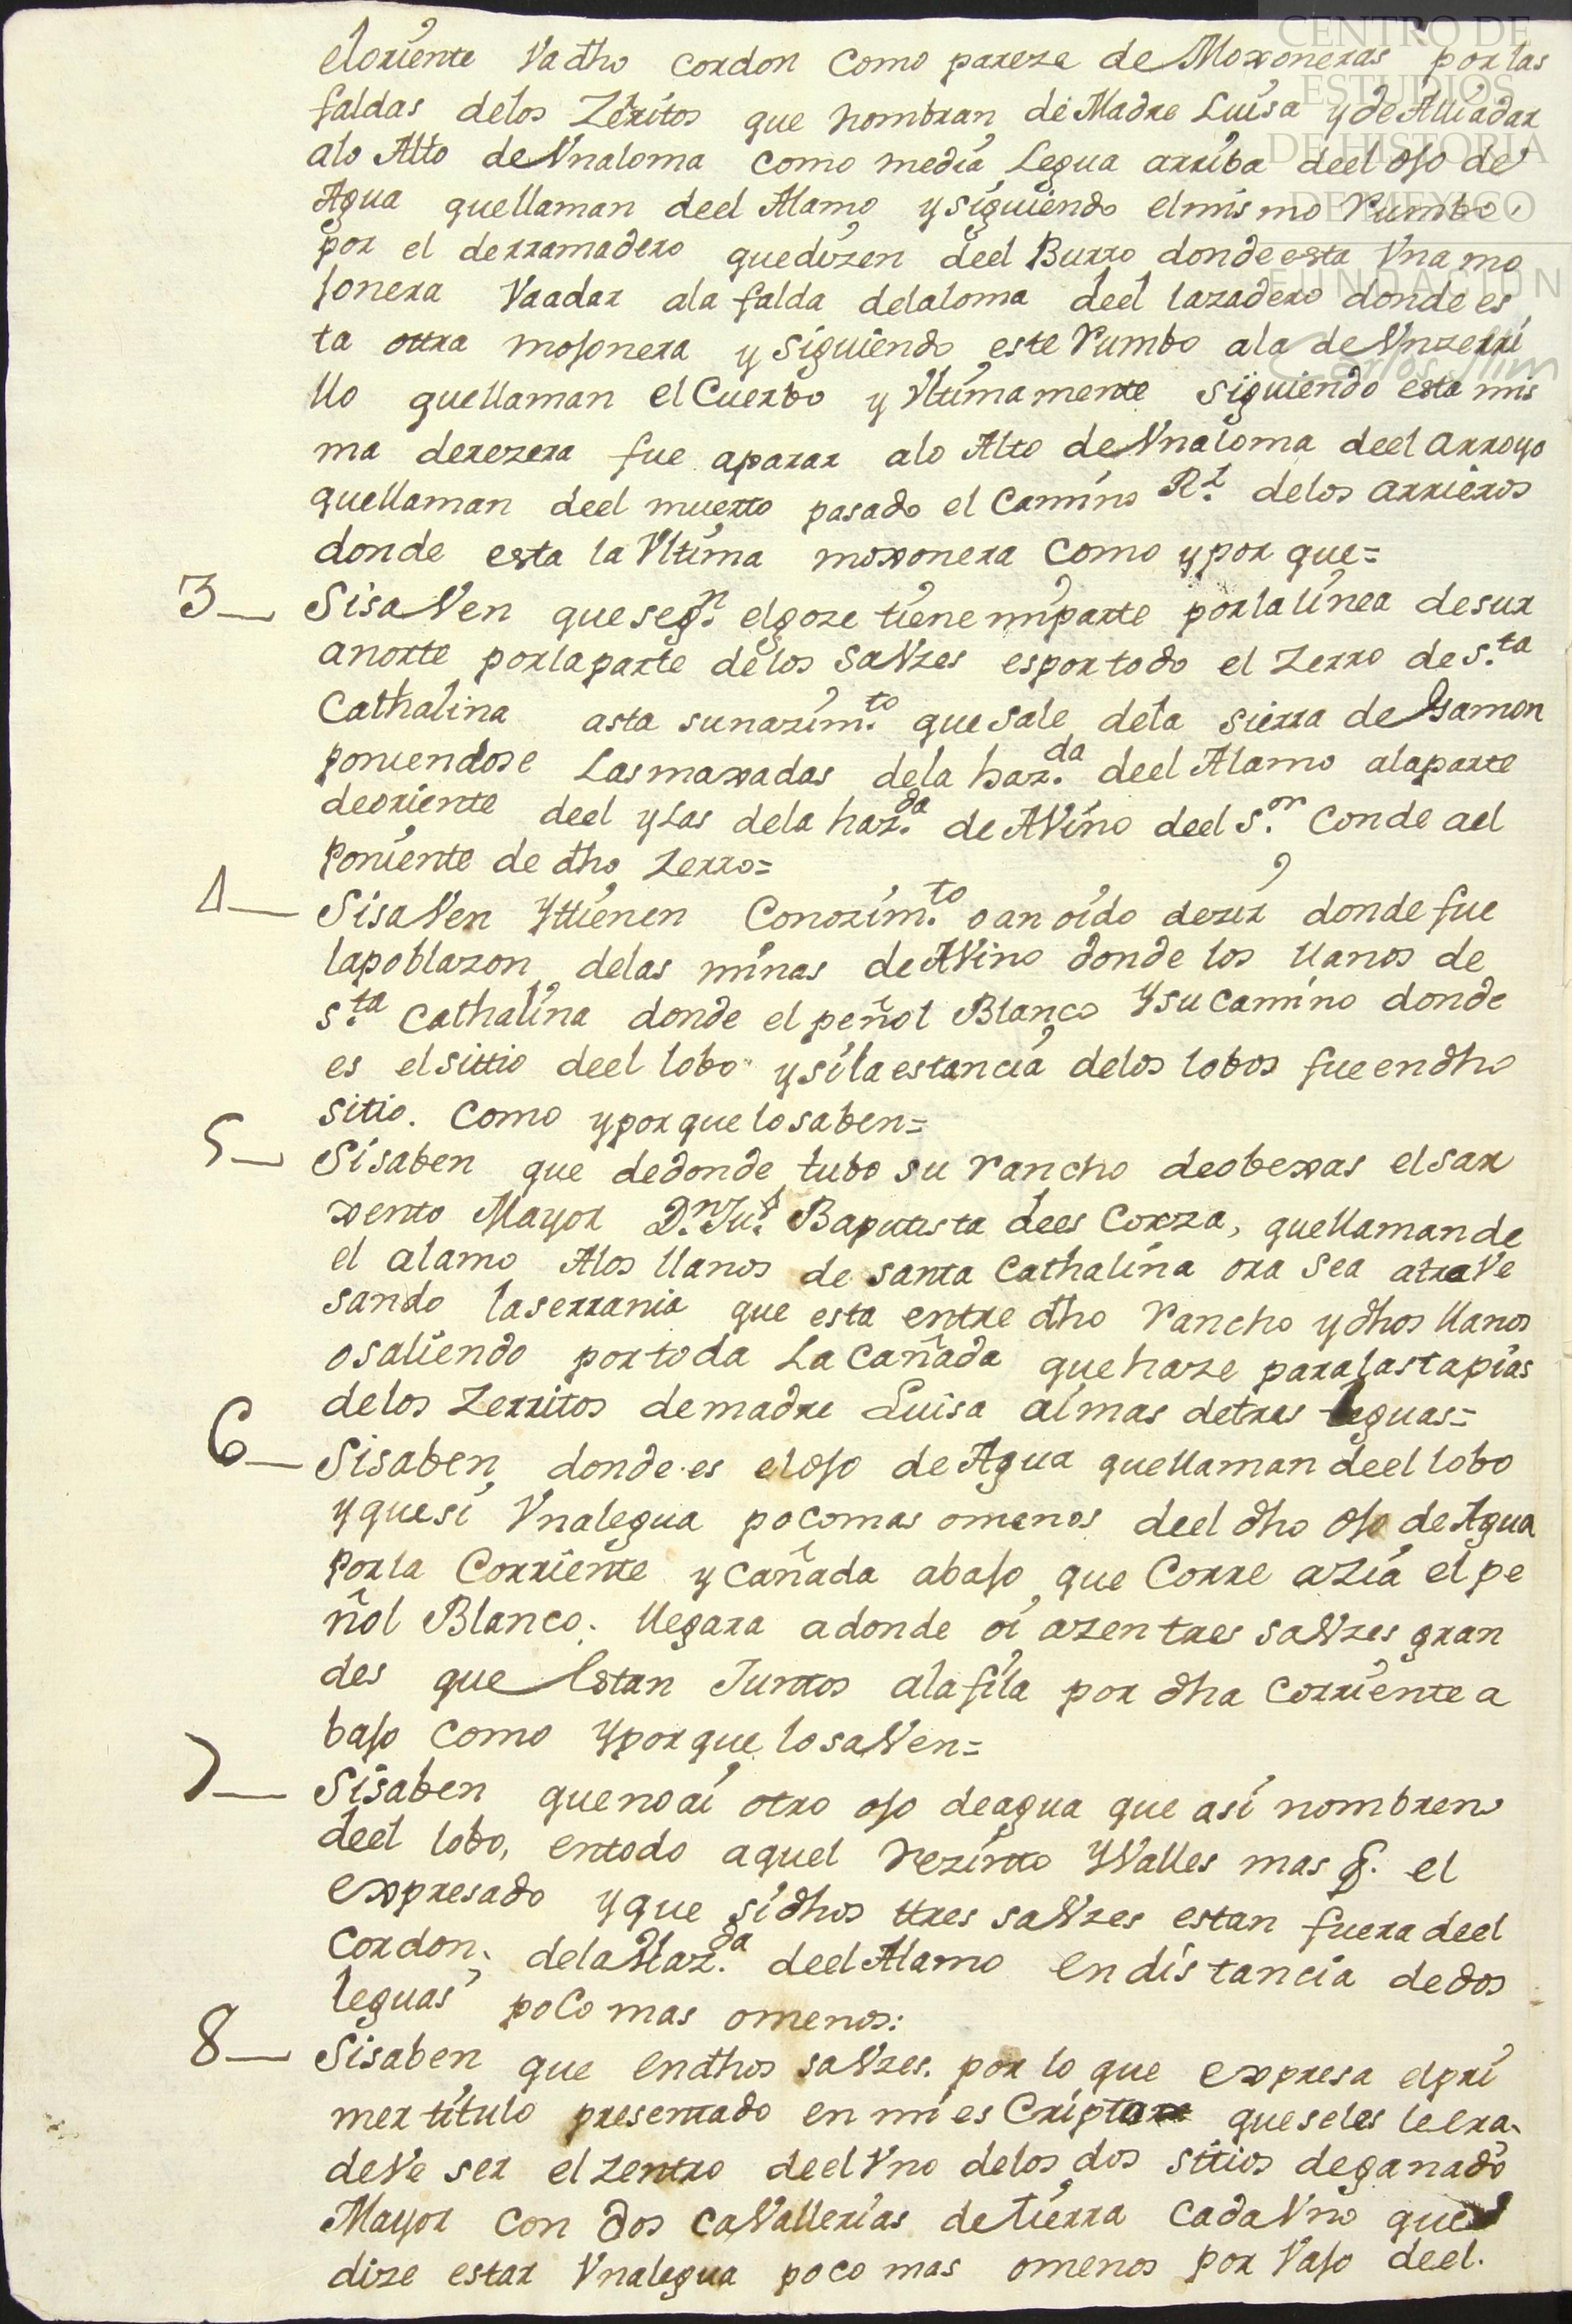 CENTRO DE
ESTUDIOS
DE HISTORIA
DE MEXICO
FUNDACION
Carlos Slim
eloriente Va dho cordon como pareze de Moxoneras por las
faldas delos Zeritos que nombran de Madre Luisa y de Allí adar
alo Alto de Vnaloma como media Legua arriba deel ojo de
Agua quellaman deel Alamo y siguiendo elmismo Rumbo
por el derramadero quedizen deel Burro donde esta Vna mo
jonera Vaadar ala falda delaloma deel lazadero donde es
ta ottra mojonera y siguiendo este Rumbo ala de Vnzerri
llo quellaman el Cuerbo y Vltimamente siguiendo esta mis
ma derezera fue aparar alo Alto de Vnaloma deel arroyo
quellaman deel muerto pasado el Camino Rl. delos arrieros
donde esta la Vltima moxonera como y por que=
3_ Sisa Ven que segn. elgoze tiene miparte porlalinea desur
anorte porlaparte delos saVzes esportodo el Zerro de s.ta
Cathalina asta sunazim.to que sale dela sierra de Gamon
poniendose Lasmaxadas dela haz.da deel Alamo alaparte
deoriente deel y Las dela haz.da de AVino deel S.or Conde ael
Poniente de dho Zerro=
4_ Sisa Ven Yttienen Conozim.to o an oido dezir donde fue
lapoblazon delas minas de AVino donde los llanos de
s.ta Cathalina donde el peñol Blanco Ysucamino donde
es elsittio deel lobo ysilaestancia delos lobos fue endho
sitio. Como yporquelosaben=
5_ Sisaben que dedonde tubo su rancho deobexas elsar
xento Mayor D.n Ju.o Baptista dees Corza, quellaman de
el alamo Alos llanos de santa Cathalina ora sea atraVe
sando laserrania que esta entre dho rancho ydhos llanos
osaliendo portoda La cañada quehaze paralastapias
delos Zerritos demadre Luisa aimas detres leguas=
6_ Sisaben donde es elojo de Agua quellaman deel lobo
yquesi Vnalegua pocomas omenos deel dho ojo de Agua
Porla Corriente y cañada abajo que Corre azia el pe
ñol Blanco. llegara adonde oi azen tres saVzes gran
des que Estan Juntos alafila por dha corriente a
bajo como Yporque losaVen=
7_ Sisaben quenoai otro ojo deagua que asi nombren
deel lobo, entodo aquel rrezinto YValles mas q. el
expresado yque sidhos ttres saVzes estan fuera deel
Cordon, dela Haz.da deel Alamo Endistancia dedos
leguas poco mas omenos:
8_ Sisaben que Endhos saVzes. por lo que expresa elpri
mer titulo presentado en mi es Cripto queseles leera
deVe ser elzentro deelVno delos dos sitios deganado
Mayor con dos caVallerias detierra cadaVno que
dize estar Vnalegua poco mas omenos por Vajo deel.